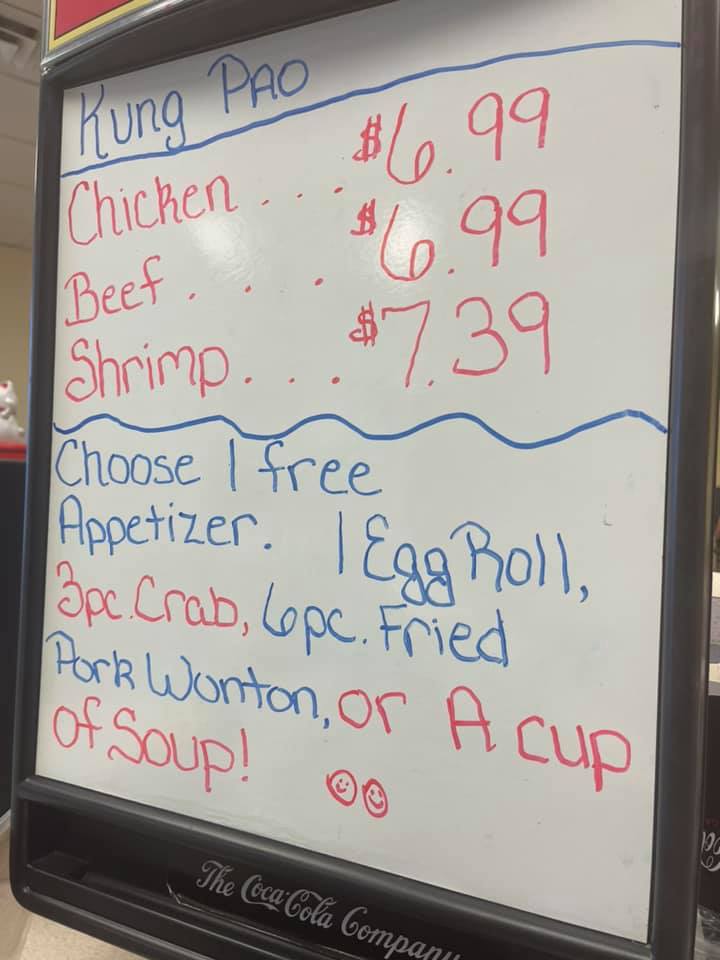 Kung PAO
Chicken . . . $6.99
Beef . . . $6.99
Shrimp . . . $7.39
Choose 1 free
Appetizer. 1 Egg Roll,
3pc. Crab, 6pc. Fried
Pork Wonton, or A cup
of Soup!
The Coca-Cola Company